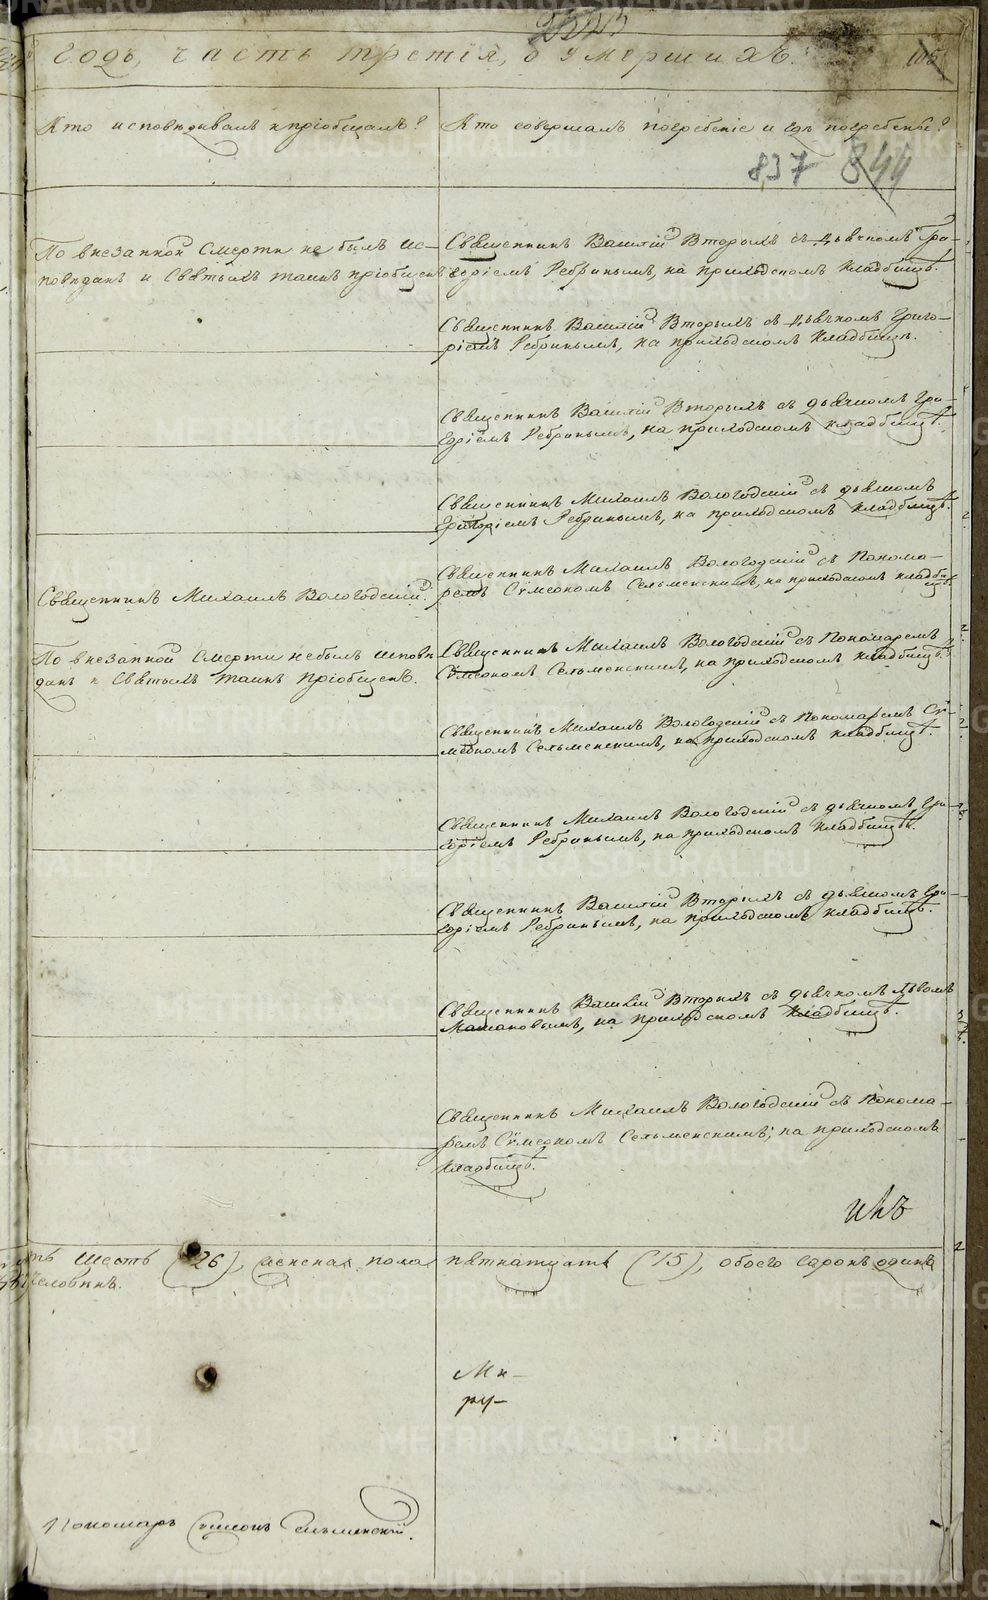 годъ, часть третія, о умершихъ.
105
Кто исповѣдывалъ и пріобщалъ?
Кто совершалъ погребеніе и гдѣ погребены?
837 844
По внезапной смерти не былъ ис-
повѣданъ и Святыхъ таинъ пріобщенъ
Священникъ Василій Вторыхъ съ дьячкомъ Гри-
горіемъ Ребринымъ, на приходскомъ кладбищѣ.
Священникъ Василій Вторыхъ съ дьячкомъ Григо-
ріемъ Ребринымъ, на приходскомъ кладбищѣ.
Священникъ Василій Вторыхъ съ дьячкомъ Гри-
горіемъ Ребринымъ, на приходскомъ кладбищѣ.
Священникъ Михаилъ Вологодскій съ дьячкомъ
Григоріемъ Ребринымъ, на приходскомъ кладбищѣ.
Священникъ Михаилъ Вологодскій.
Священникъ Михаилъ Вологодскій съ Понома-
ремъ Сѵмеономъ Сельменскимъ, на приходскомъ кладбищѣ.
По внезапной смерти небылъ исповѣ
данъ и Святыхъ таинъ пріобщенъ.
Священникъ Михаилъ Вологодскій съ Пономаремъ
Сѵмеономъ Сельменскимъ, на приходскомъ кладбищѣ.
Священникъ Михаилъ Вологодскій съ Пономаремъ Сѵ-
меономъ Сельменскимъ, на приходскомъ кладбищѣ.
Священникъ Михаилъ Вологодскій съ дьячкомъ Гри-
горіемъ Ребринымъ, на приходскомъ кладбищѣ.
Священникъ Василій Вторыхъ съ дьячкомъ Гри-
горіемъ Ребринымъ, на приходскомъ кладбищѣ.
Священникъ Василій Вторыхъ съ дьячкомъ Львомъ
на приходскомъ кладбищѣ.
Священникъ Михаилъ Вологодскій съ Понома-
ремъ Сѵмеономъ Сельменскимъ, на приходскомъ
кладбищѣ.
ть шесть (26), женска пола пятнатцать (15), обоего сорокъ одинъ
человѣкъ.
Ми-
ру-
Пономарь Сѵмеонъ Сельменскій.
METRIKI.GASO-URAL.RU